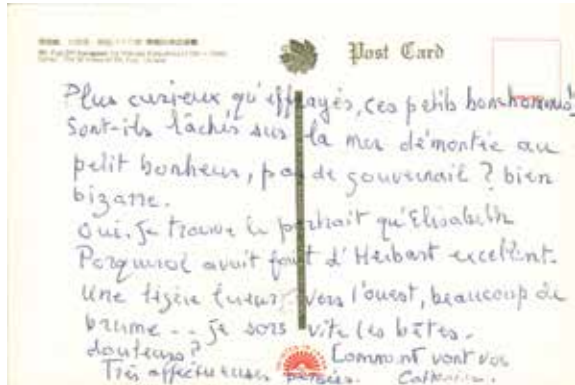 Post Card
Plus curieux qu'effrayés, ces petits bonshommes!
Sont-ils lâchés sur la mer démontée au
petit bonheur, pas de gouvernail ? bien
bizarre.
Oui. Je trouve le portrait qu'Elisabeth
Porquerol avait fait d'Herbart excellent.
Une légère lueur vers l'ouest, beaucoup de
brume -- je sors vite les bêtes.
douteurs?
Comment vont vos
Très affectueuses pensées. Catherine.